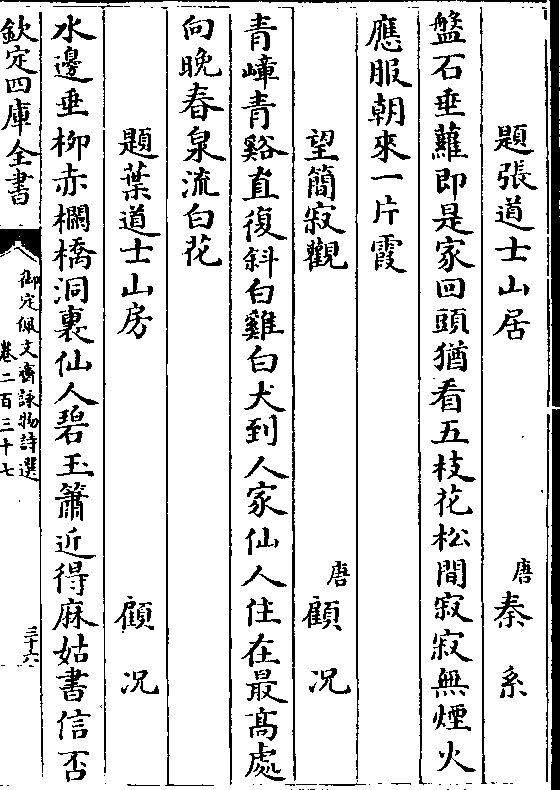 題張道士山居 唐 秦系
盤石垂蘿即是家回頭猶看五枝花松間寂寂無煙火
應服朝來一片霞
望簡寂觀 唐 顧況
青嶂青谿直復斜白雞白犬到人家仙人住在最髙處
向晚春泉流白花
題葉道士山房 顧況
水邊垂柳赤欄橋洞裏仙人碧玉簫近得麻姑書信否
欽定四庫全書
御定佩文齋詠物詩選
卷二百三十七
三十六